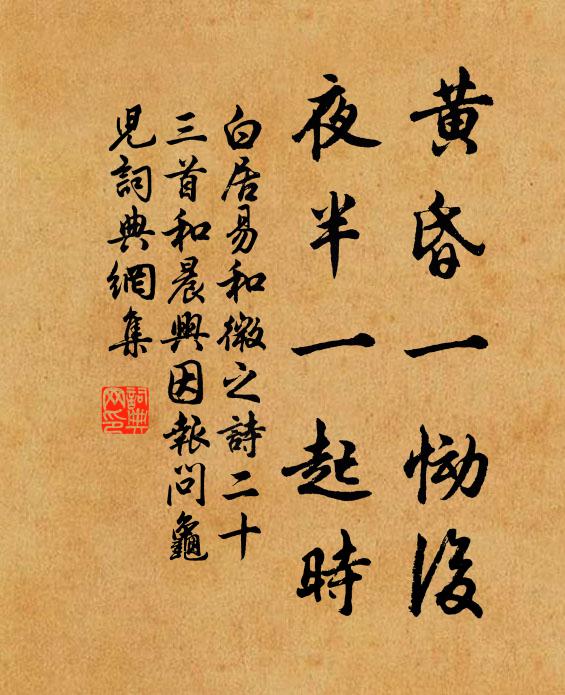 黄昏一恸後
夜半一起時
白居易和微之詩二十
三首和晨興因報問龜
兒詞典網集
詞典
网印